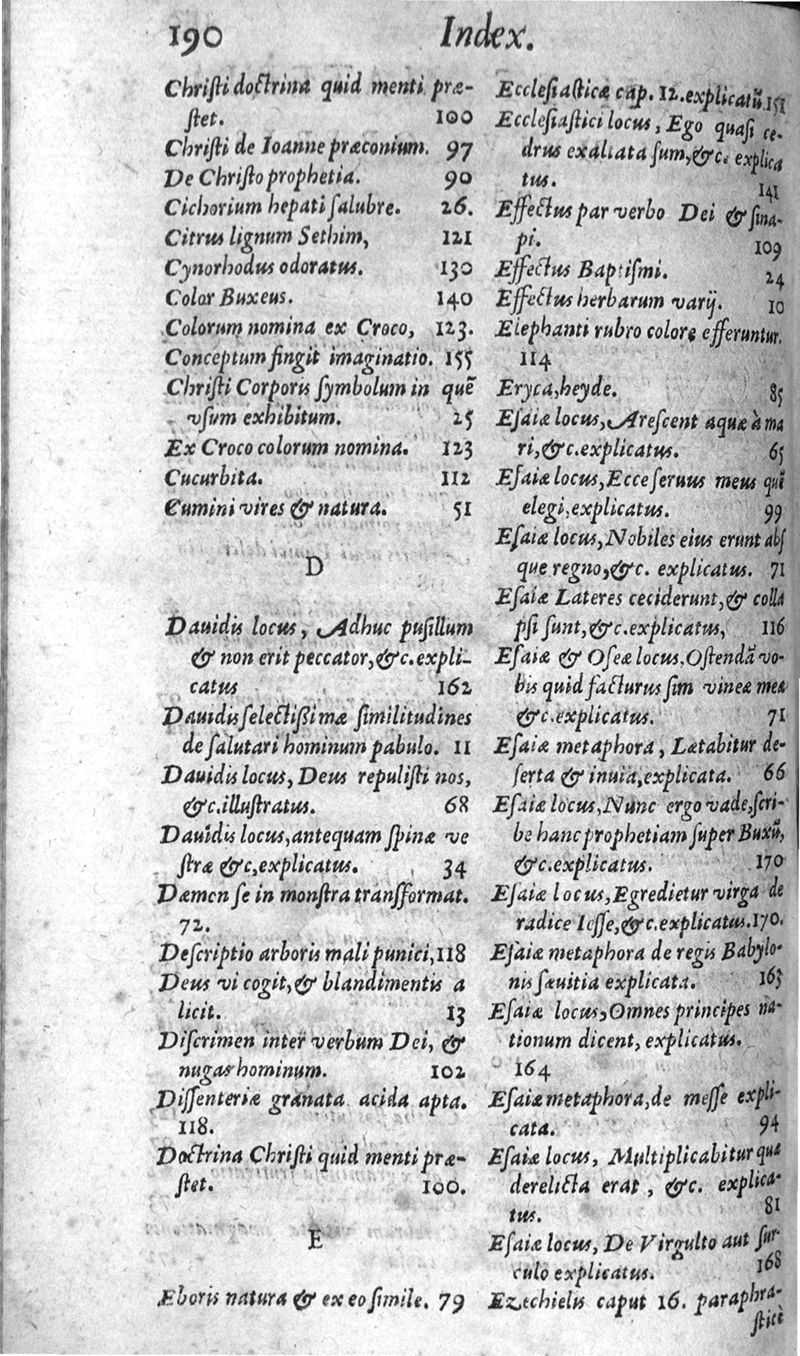 190
Index.
Christi doctrina quid menti præ-
stet. 100
Christi de Ioanne præconium. 97
De Christo prophetia. 90
Cichorium hepati salubre. 26.
Citrus lignum Sethim, 121
Cynorhodus odoratus. 130
Color Buxeus. 140
Colorum nomina ex Croco, 123.
Conceptum fingit imaginatio. 155
Christi Corporis symbolum in quẽ
vsum exhibitum. 25
Ex Croco colorum nomina. 123
Cucurbita. 112
Cumini vires & natura. 51
D
Dauidis locus, Adhuc pusillum
& non erit peccator, &c. expli-
catus 162
Dauidis selectißimæ similitudines
de salutari hominum pabulo. 11
Dauidis locus, Deus repulisti nos,
&c. illustratus. 68
Dauidis locus, antequam spinæ ve
stræ &c, explicatus. 34
Dæmon se in monstra transformat.
72.
Descriptio arboris mali punici, 118
Deus vi cogit, & blandimentis a
licit. 13
Discrimen inter verbum Dei, &
nugas hominum. 102
Dissenteriæ granata acida apta.
118.
Doctrina Christi quid menti præ-
stet. 100.
E
Eboris natura & ex eo simile. 79
Ecclesiasticæ cap. 12. explicatũ. 151
Ecclesiastici locus, Ego quasi ce-
drus exaltata sum, &c. explica
tus. 141
Effectus par verbo Dei & sina-
pi. 109
Effectus Baptismi. 24
Effectus herbarum varij. 10
Elephanti rubro colore efferuntur.
114
Eryca, heyde. 85
Esaiæ locus, Arescent aquæ à ma
ri, &c. explicatus. 65
Esaiæ locus, Ecce seruus meus quẽ
elegi, explicatus. 99
Esaiæ locus, Nobiles eius erunt abs
que regno, &c. explicatus. 71
Esaiæ Lateres ceciderunt, & colla
psi sunt, &c. explicatus, 116
Esaiæ & Oseæ locus, Ostendã vo-
bis quid facturus sim vineæ meæ
&c. explicatus. 71
Esaiæ metaphora, Lætabitur de-
serta & inuia, explicata. 66
Esaiæ locus, Nunc ergo vade, scri-
be hanc prophetiam super Buxũ,
&c. explicatus. 170
Esaiæ locus, Egredietur virga de
radice Iesse, &c. explicatus. 170.
Esaiæ metaphora de regis Babylo-
nis sæuitia explicata. 163
Esaiæ locus, Omnes principes na-
tionum dicent, explicatus.
164
Esaiæ metaphora, de messe expli-
cata. 94
Esaiæ locus, Multiplicabitur quæ
derelicta erat, &c. explica-
tus. 81
Esaiæ locus, De Virgulto aut sur-
culo explicatus. 168
Ezechielis caput 16. paraphra-
sticè